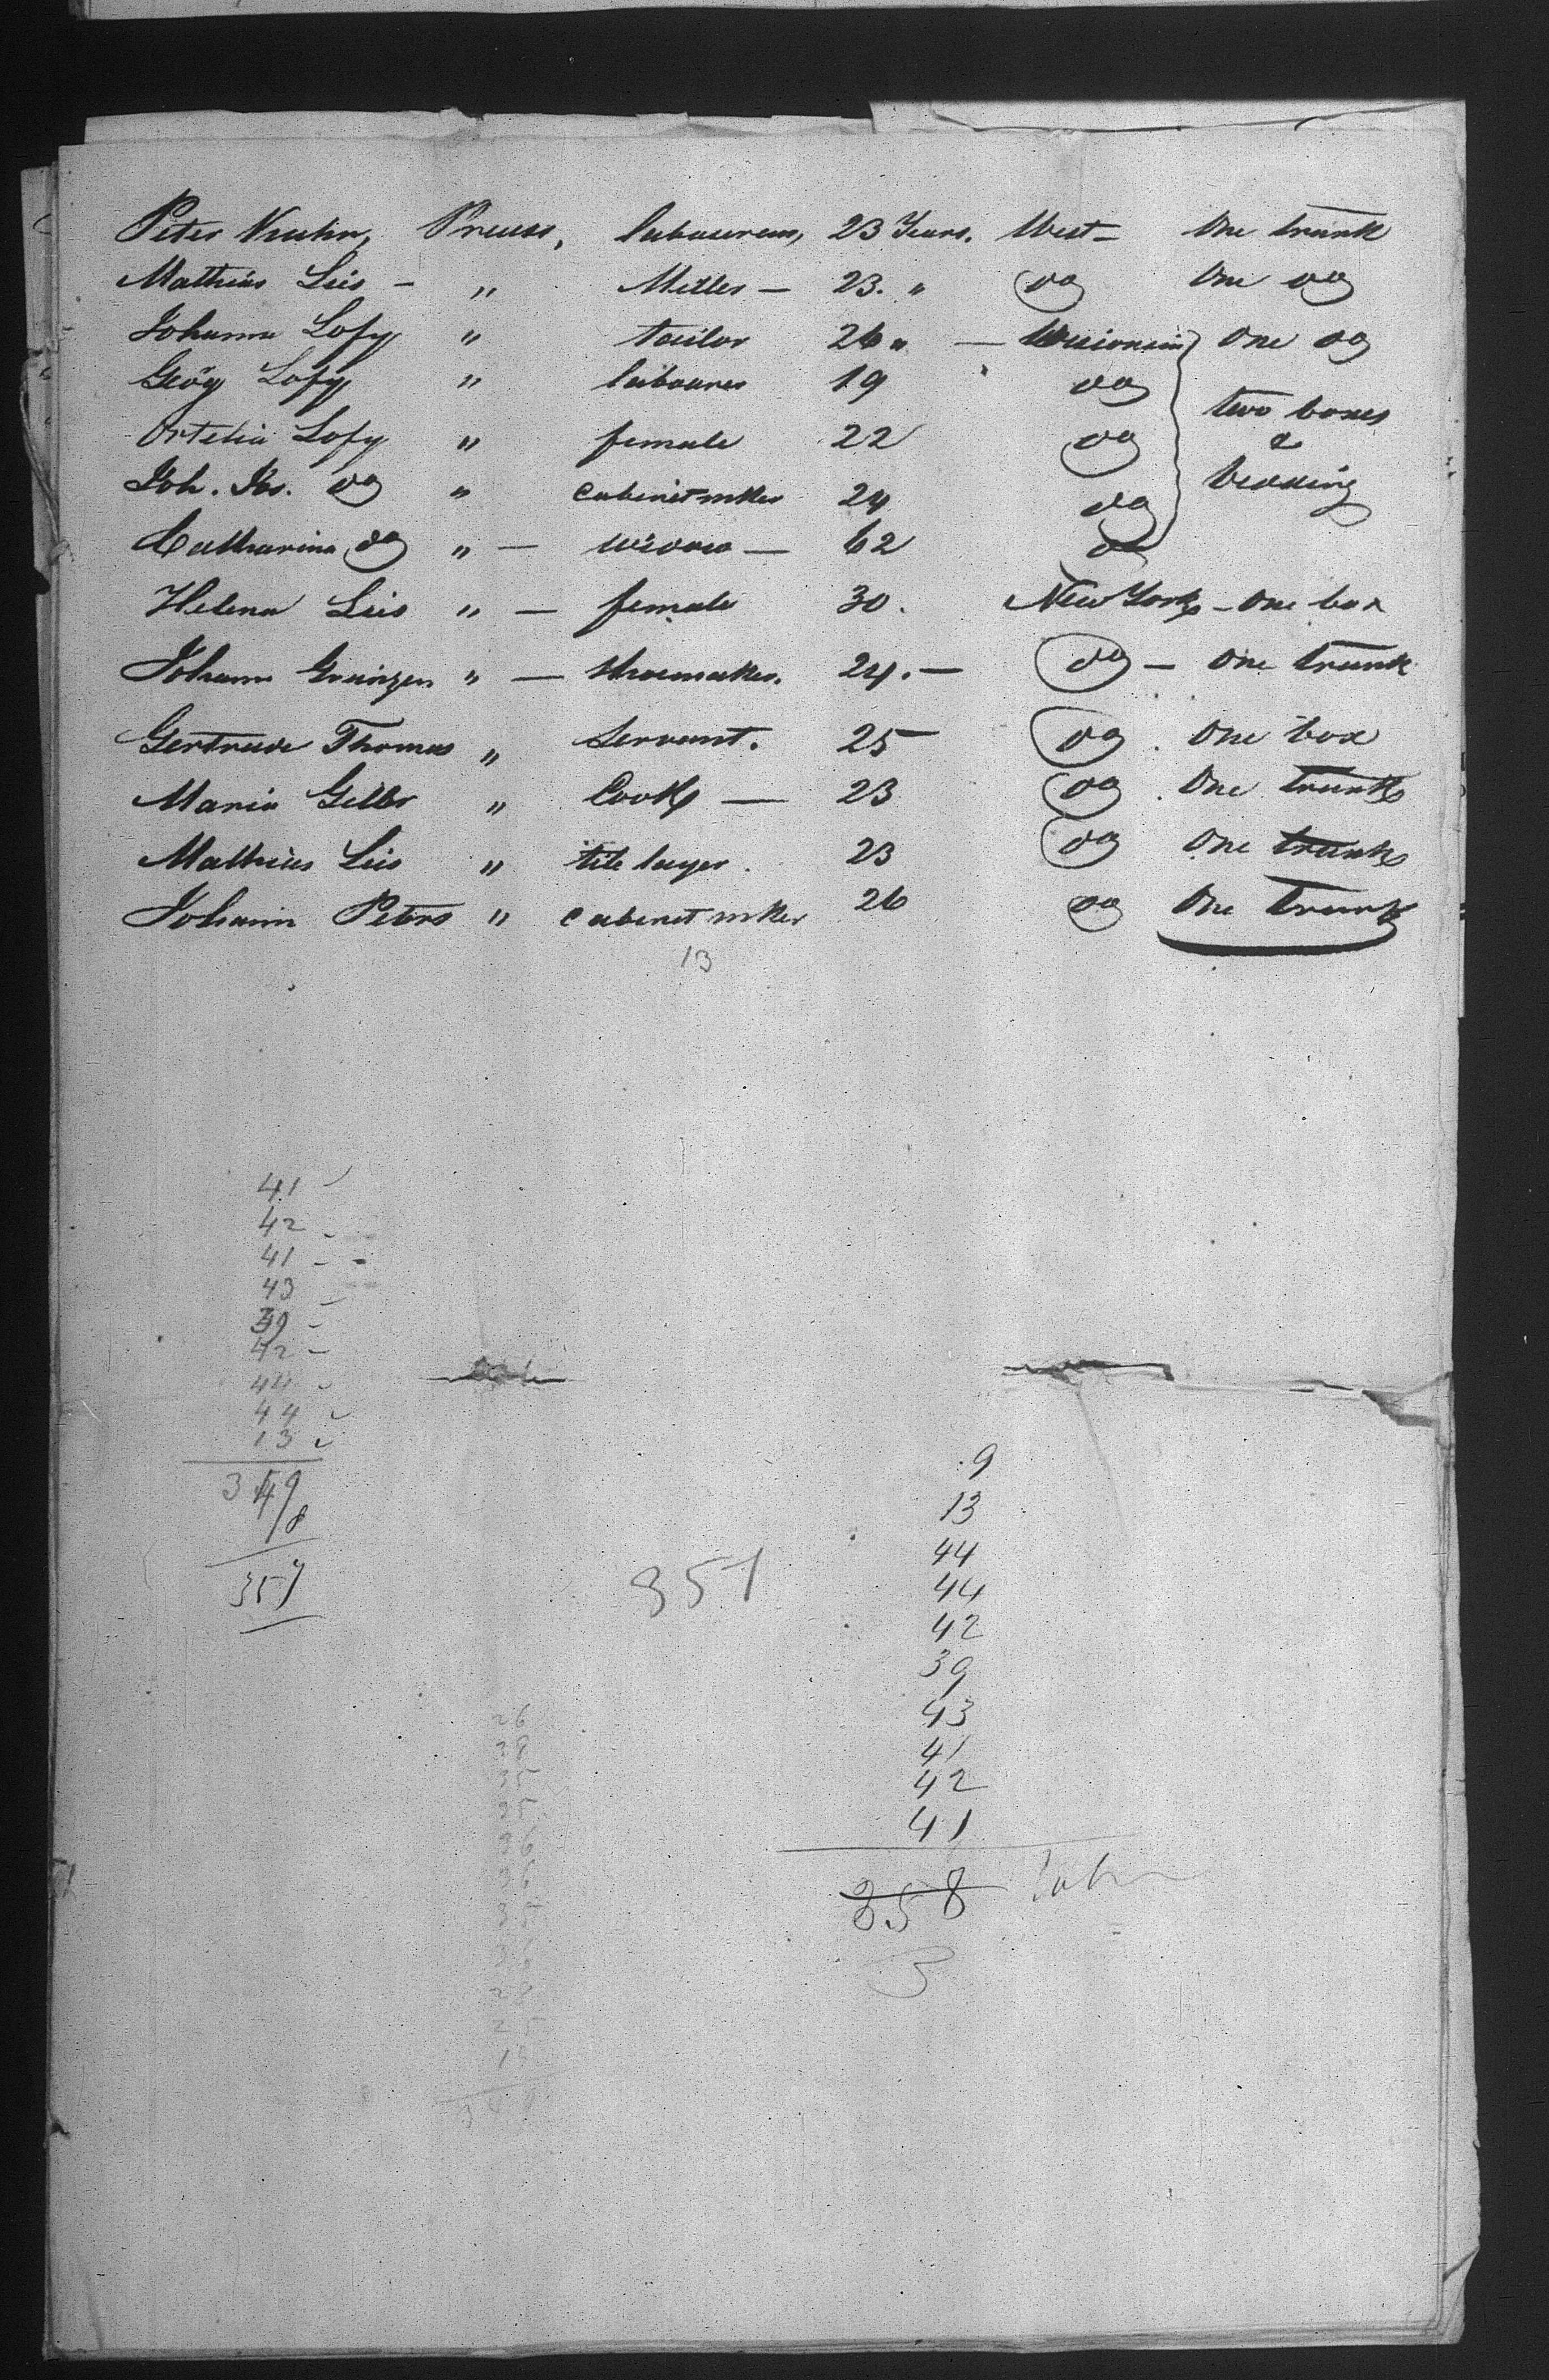 Peter Kruhn, Preuss, labourer, 23 Years. West - One trunk
Mathias Leis - " Miller - 23. " do One do
Johann Lofy " tailor 26 " - Wisionsin One do
Geög Lofy " labourer 19 do
two boxes
Ortelia Lofy " female 22 do &
Joh. Jos. do " cabinetmker 24 do bedding
Catharina do " - widow - 62 do
Helena Leis " - female 30. New York - One box
Johann " - Shoemaker. 24. - do - One trunk
Gertrude Thomas " Servant. 25 do . One box
Maria " Cook - 23 do . One trunk
Mathias Leis " tile layer . 23 do One trunk
Johann Peters " cabinet mker 26 do One trunk
13
41
42 -
41 - -
43
39 -
42 -
44
44
13
349
8
357
351
9
13
44
44
42
39
43
41
42
41
358
3
26